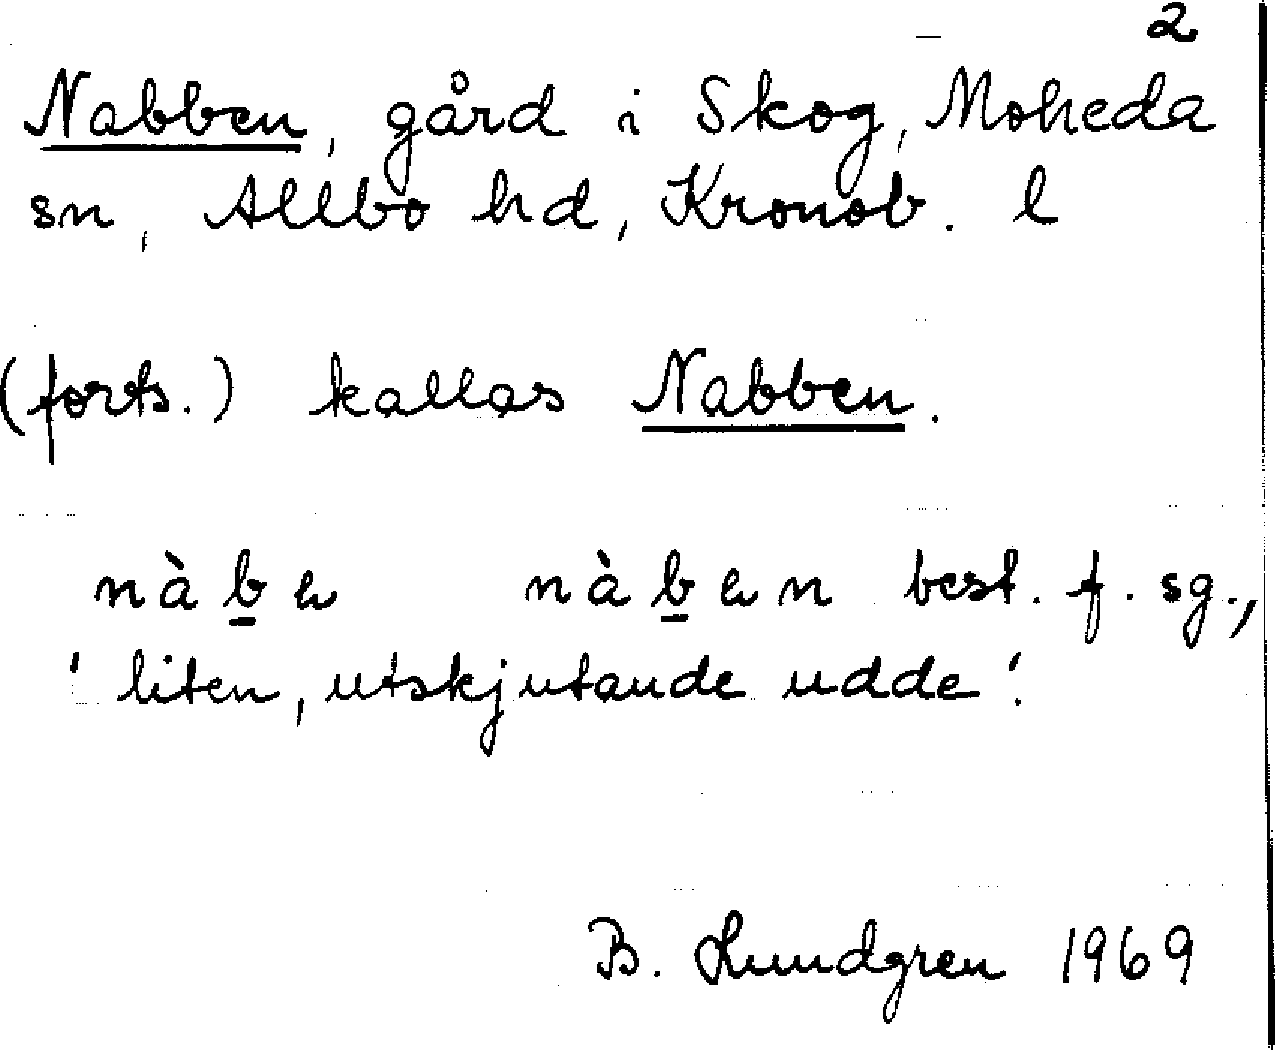 2
Nabben, gård i Skog, Moheda
sn, Allbo hd, Kronob. l
(forts.) kallas Nabben.
nàb̲ɐ nàb̲ɐn best. f. sg.,
'liten, utskjutande udde'.
B. Lundgren 1969